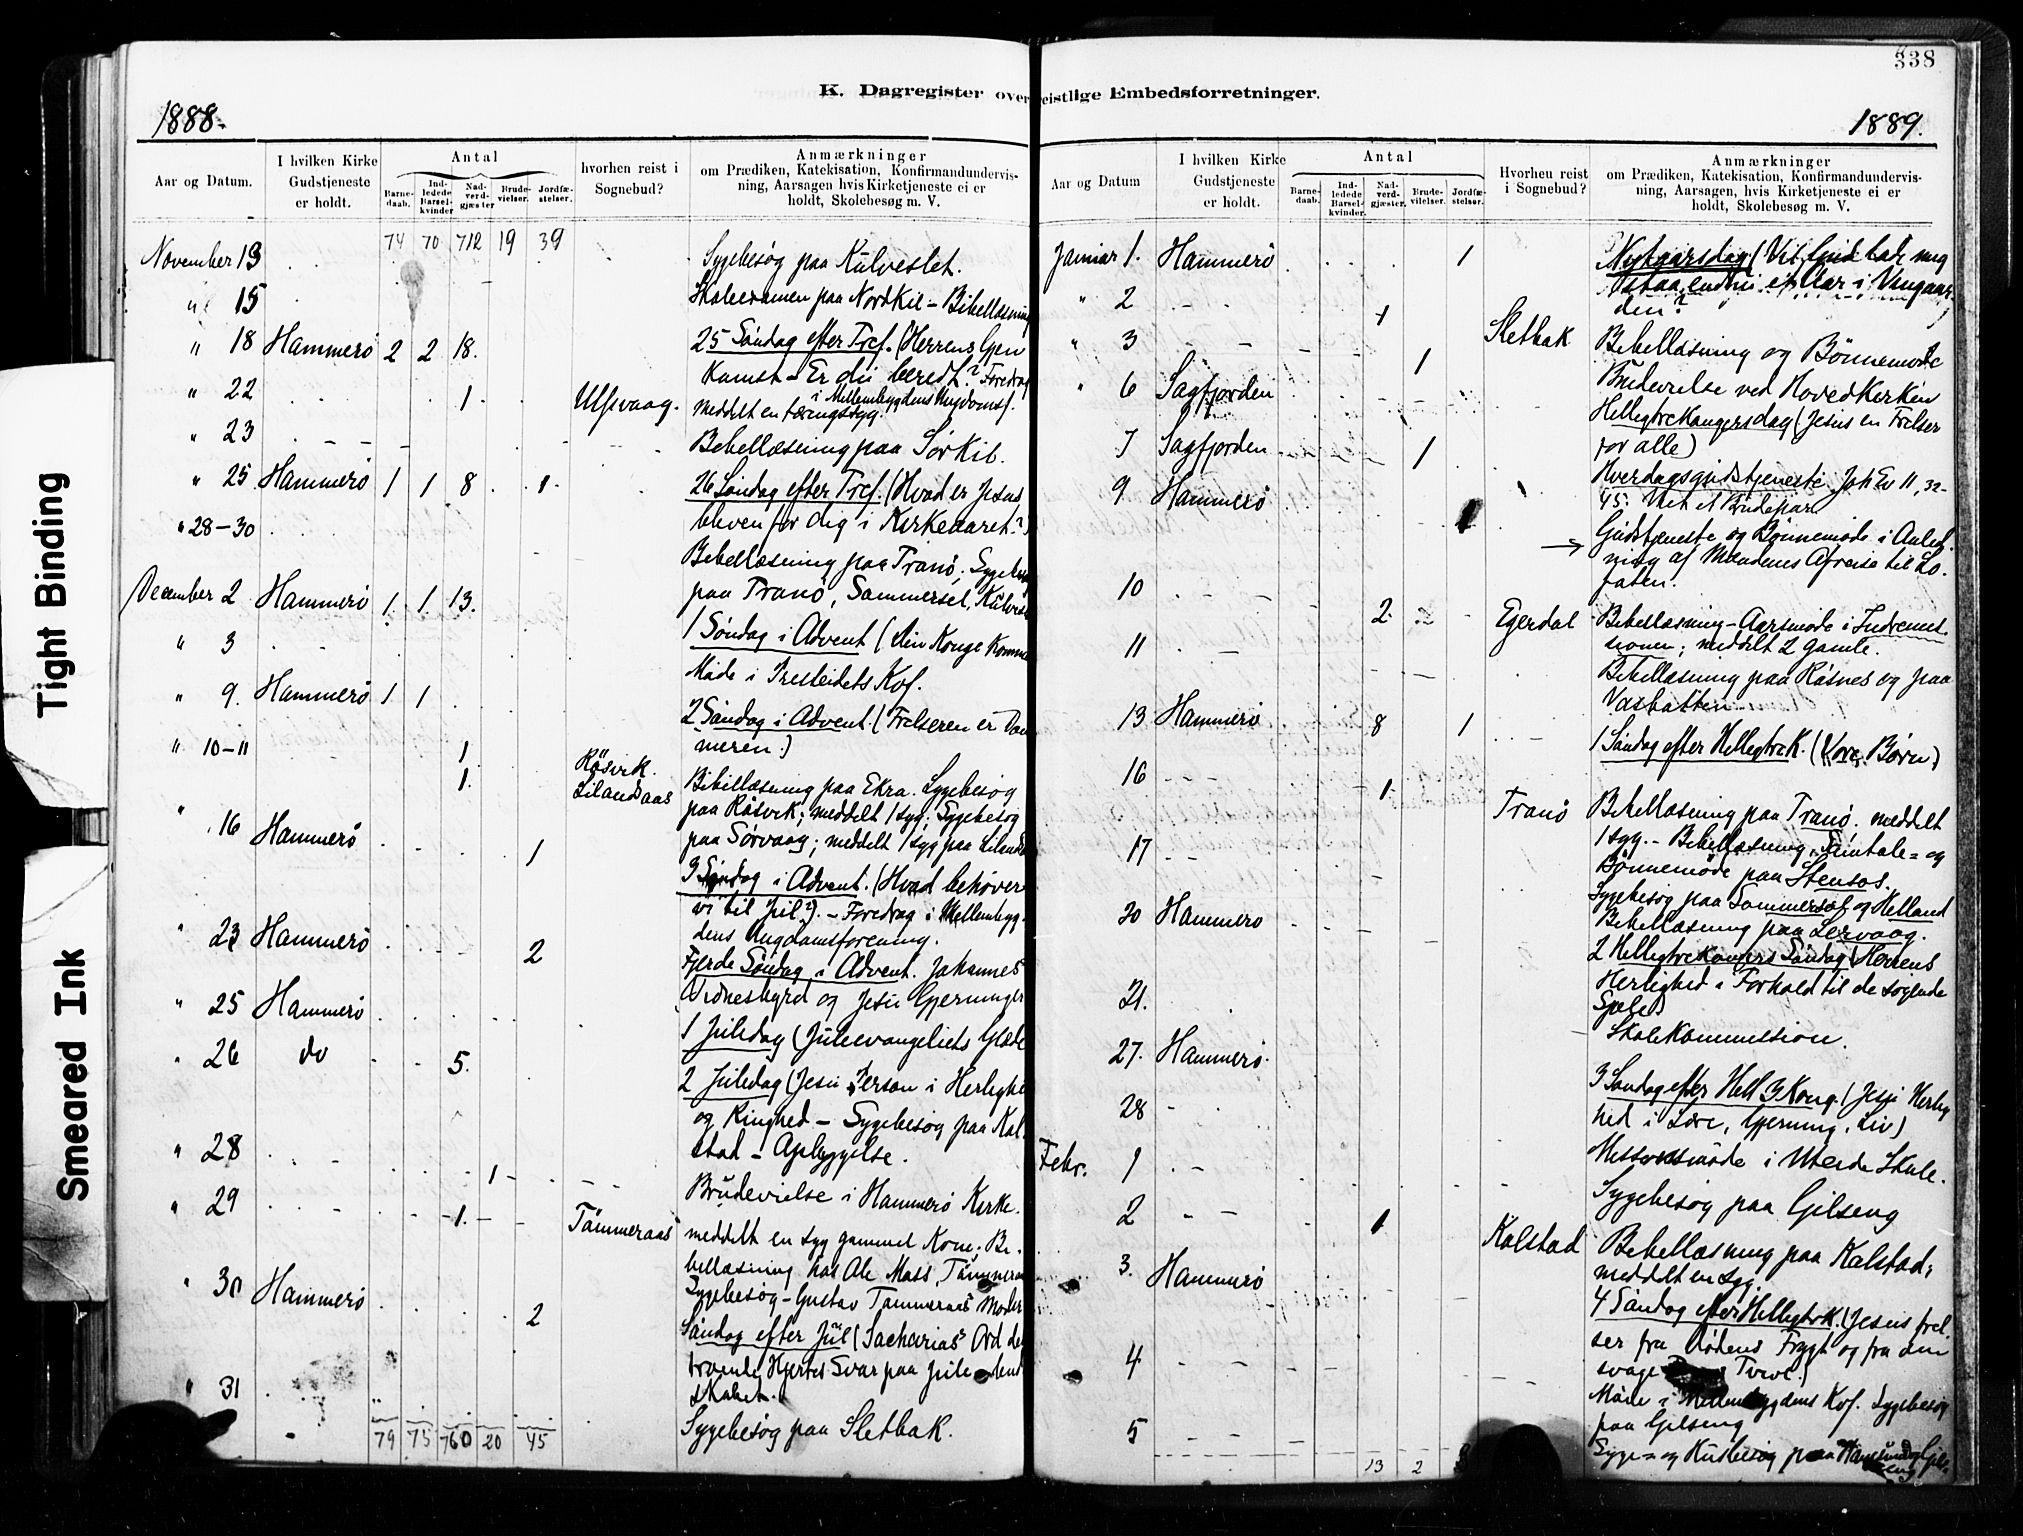 338
K. Dagregister over
eistlige Embedsforretninger.
1888.
1889.
Tight Binding
Smeared Ink
Aar og Datum.
I hvilken Kirke
Gudstjeneste
er holdt.
Antal
Barne-
daab.
Ind-
ledede
Barsel-
kvinder
Nad-
verd-
gjæster
Brude-
vielser.
Jordfæ-
stelser.
hvorhen reist i
Sognebud?
Anmærkninger
om Prædiken, Katekisation, Konfirmandundervis-
ning, Aarsagen hvis Kirketjeneste ei er
holdt, Skolebesøg m. V.
74 70 712 19 39
November 13 Sygebesøg paa Kulveslet.
" 15 Skoleexamen paa Nordkil - Bibellæsning
" 18 Hammerö 2 2 18. 25 Söndag efter Tref. (Herrens Gjen
Komst - Er du beredt? Foredrag
i Mellembygdens Ungdomsf.
" 22 1 Ulfsvaag. meddelt en tæringssyg.
" 23 Bibellæsning paa Sörkil.
" 25 Hammerö 1 1 8 1 26 Söndag efter Tref. (Hvad er Jesus
bleven for dig i Kirkeaaret?)
" 28-30 Bibellæsning paa Tranö. Sygebesøg
paa Tranö, Sommersel, Kulvesl
December 2 Hammerö 1. 1. 13. 1 Söndag i Advent (Din Konge Kommer
" 3 Möde i Presteidets Kvf.
" 9. Hammerö 1 1 2 Söndag i Advent. (Frelseren er Dom
meren.)
" 10-11 1 Råsvik.
1. Lilandsaas Bibellæsning paa Ekra. Sygebesøg
paa Råsvik; meddelt 1 syg; Sygebesøg
paa Sörvaag; meddelt 1 syg paa Lilands
" 16 Hammerö 1 3 Söndag i Advent. (Hvad behøver
vi til Jul?). - Foredrag i Mellembyg-
dens Ungdomsforening.
" 23 Hammerö 2 Fjerde Söndag i Advent. Johannes
Vidnesbyrd og Jesu Gjerninger
" 25 Hammerö 1 Juledag (Juleevangeliets Glæde
" 26 do 5. 2 Juledag (Jesu Person i Herlighe
og Ringhed - Sygebesøg paa Kal
stad - Opbyggelse.
" 28 1 Brudevielse i Hammerö Kirke.
" 29 1. Tömmeraas meddelt en syg gammel Kone; Bi-
bellæsning hos Ole Mass, Tömmeraas
Sygebesøg - Gustav Tömmeraas Moder
" 30 Hammerö 2 Söndag efter Jul (Sacharias Ord det
troende Hjertes Svar paa Jule
skabet.
" 31 Sygebesøg paa Sletbak.
79 75 760 20 45
Aar og Datum
I hvilken Kirke
Gudstjeneste
er holdt.
Antal
Barne-
daab.
Ind-
ledede
Barsel-
kvinder.
Nad-
verd-
gjæster.
Brude-
vilelser.
Jordfæ-
stelser.
Hvorheu reist
i Sognebud?
Anmærkninger
om Prædiken, Katekisation, Konfirmandundervis-
ning, Aarsagen, hvis Kirketjeneste ei er
holdt, Skolebesøg m. V.
Januar 1. Hammerö 1 Nytaarsdag (Vil Gud lade mig
staa endnu et Aar i Vingaar
den?)
" 2 1 Sletbak Bibellæsning og Bönnemöde
" 3 1 Brudevielse ved Hovedkirken
" 6 Sagfjorden Helligtrekongersdag (Jesus en Frelser
for alle)
7 Sagfjorden 1 Hverdagsgudstjeneste. Joh Ev 11, 32-
45. Viet et Brudepar
9 Hammerö 1 Gudstjeneste og Bönnemöde i Anled-
ning af Mændenes Afreise til Lo-
foten.
10 2. Egerdal Bibellæsning - Aarsmöde i Indremis-
sionen; meddelt 2 gamle.
11 Bibellæsning paa Råsnes og paa
Vasbatten
13 Hammerö 8 1 1 Söndag efter Helligtrek. (Vore Børn)
16 1. Tranö Bibellæsning paa Tranö. meddelt
1 syg. - Bibellæsning, Samtale= og
Bönnemöde paa Stensos.
17 Sygebesøg paa Sommersel og Helland
Bibellæsning paa Lervaag.
20 Hammerö 2 Helligtrekongers Söndag (Herrens
Herlighed i Forhold til de søgende
Sjæle)
21. Skolekommission.
27. Hammerö. 3 Söndag efter Hell 3 Kong. (Jesu Herlig
hed i Lære, Gjerning, Liv)
28 Missionsmöde i Uteide Skole.
Febr. 1 Sygebesøg paa Gilseng
2 1 Kalstad Bibellæsning paa Kalstad;
meddelt en syg.
3. Hammerö 4 Söndag efter Helligtrek. (Jesus frel-
ser fra Dødens Frygt og fra den
svage Tvivl.)
4 Möde i Mellembygdens Kvf. Sygebesøg
paa Gilseng
5 Syge= og Husbesøg paa
13 2